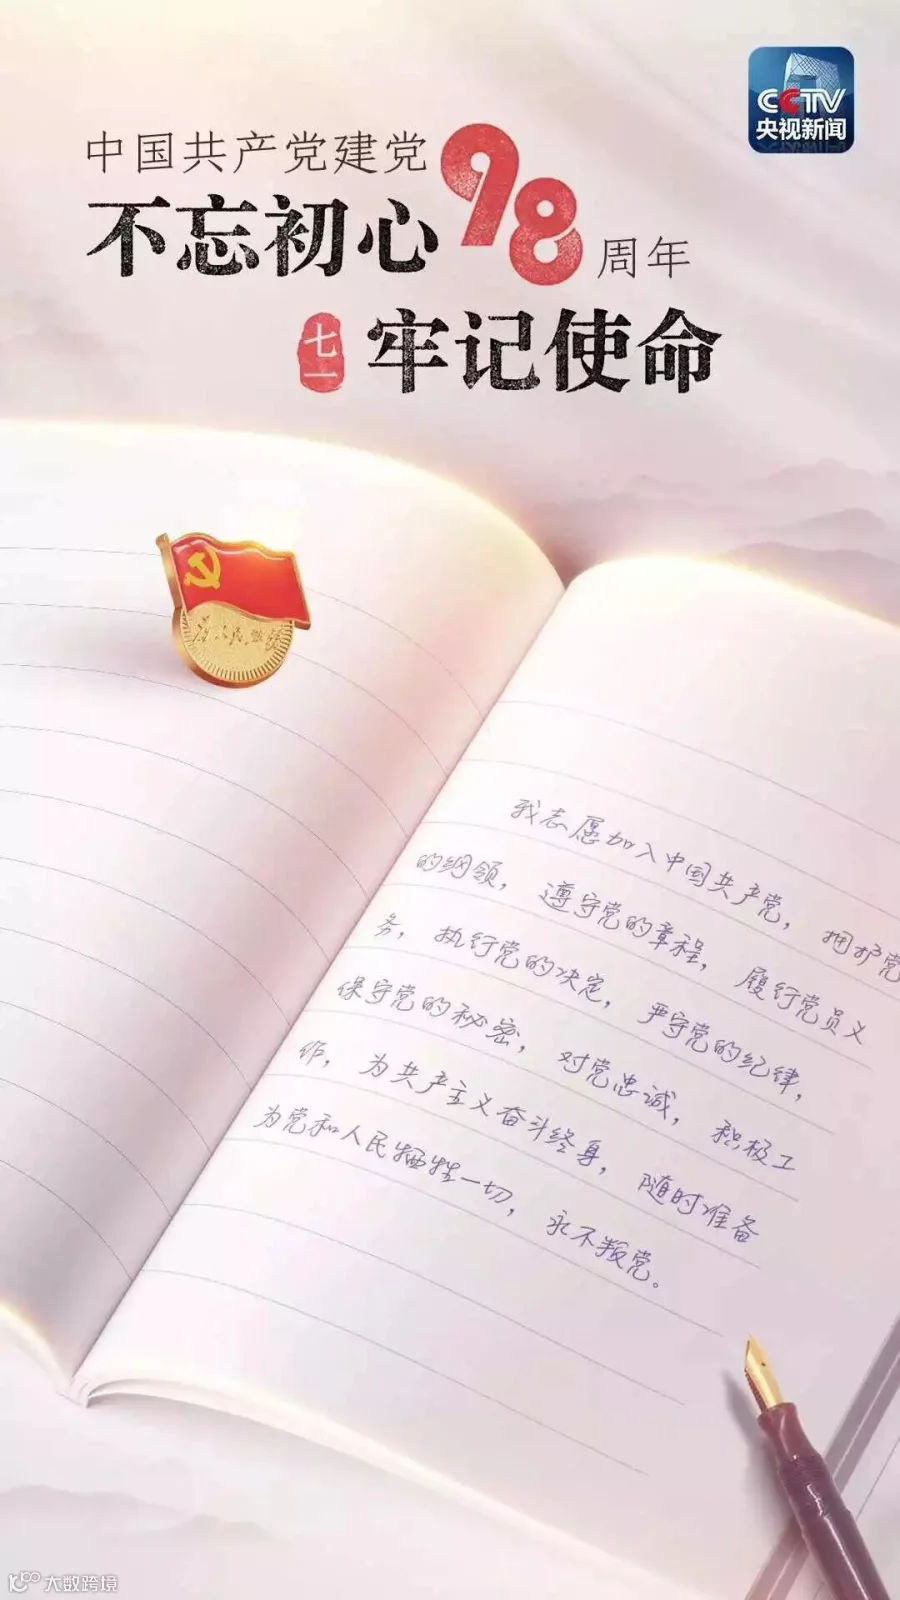 CCTV
央视新闻
中国共产党建党98周年
不忘初心
七一
牢记使命
为人民服务
我志愿加入中国共产党，拥护党
的纲领，遵守党的章程，履行党员义
务，执行党的决定，严守党的纪律，
保守党的秘密，对党忠诚，积极工
作，为共产主义奋斗终身，随时准备
为党和人民牺牲一切，永不叛党。
大数跨境